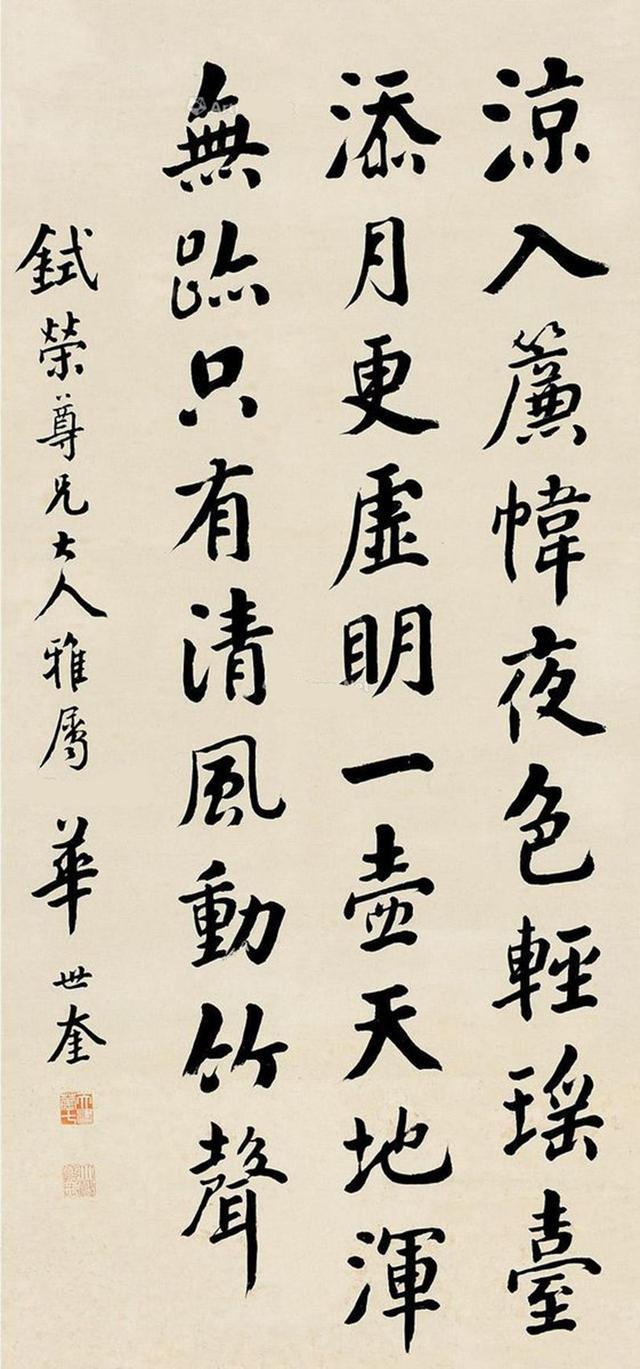 涼入簾幃夜色輕瑶臺
添月更虛明一壺天地渾
無跡只有清風動竹聲
鉽榮尊兄大人雅屬 華世奎